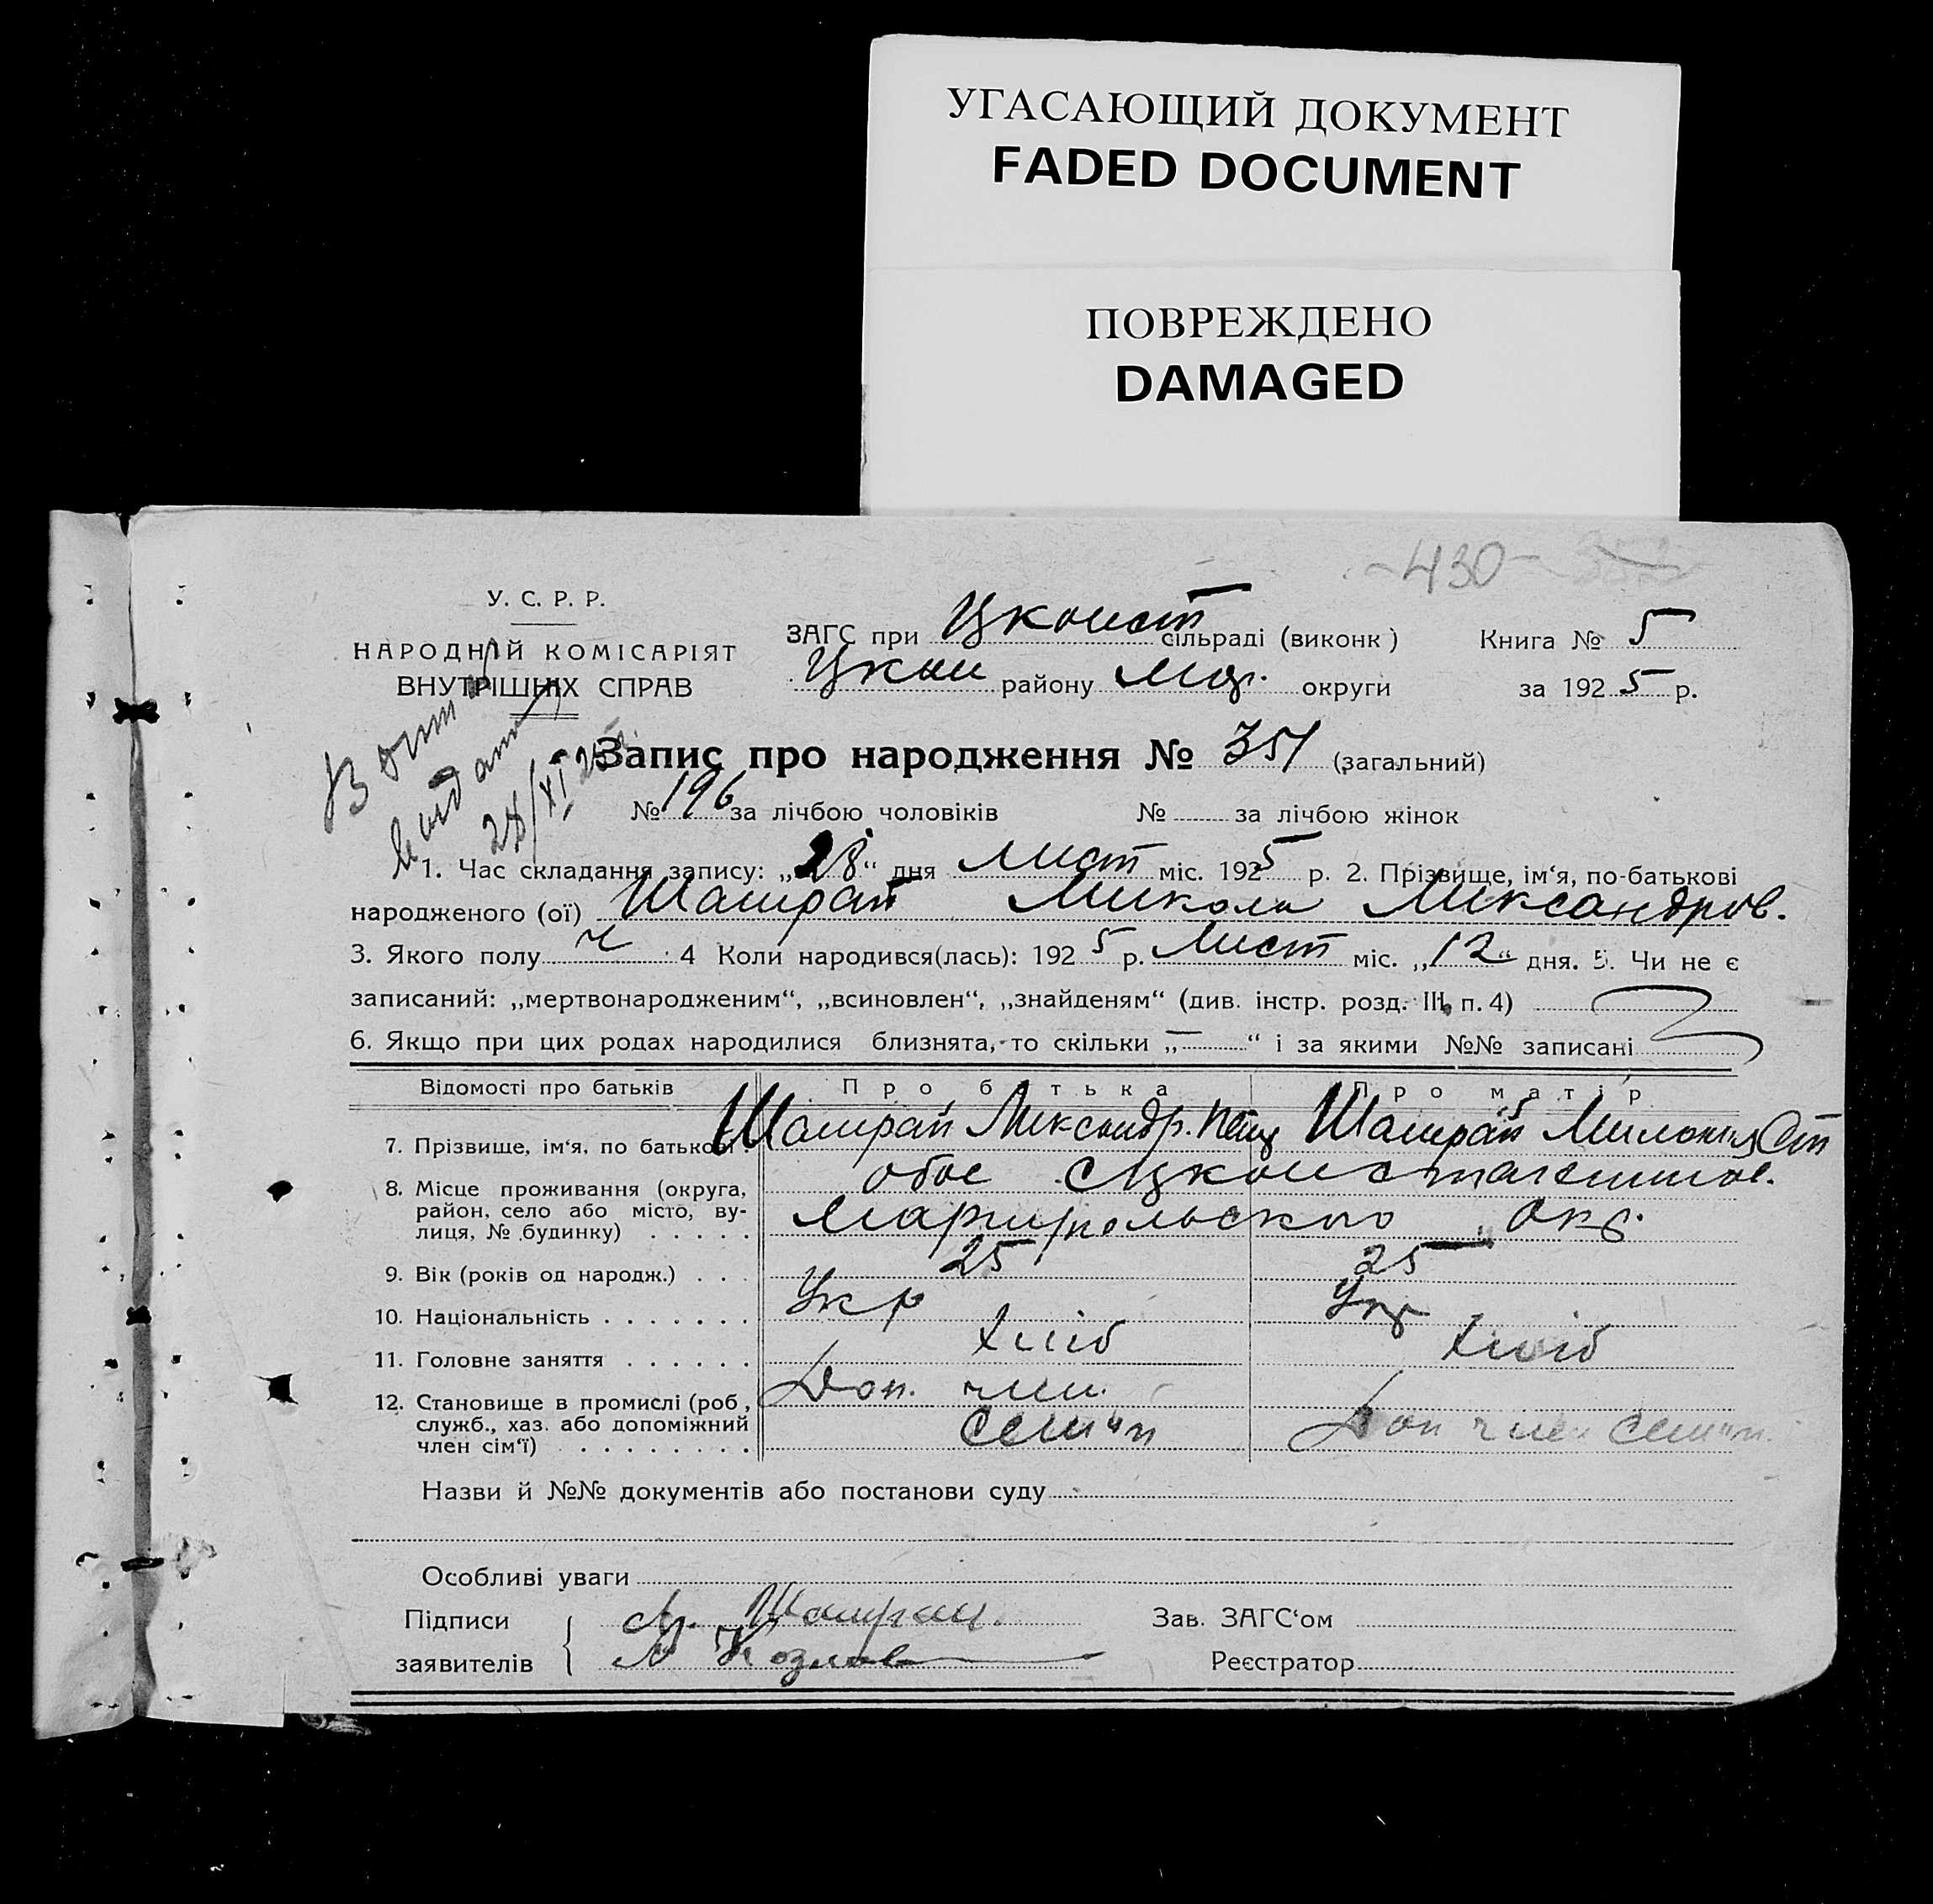 УГАСАЮЩИЙ ДОКУМЕНТ
FADED DOCUMENT
ПОВРЕЖДЕНО
DAMAGED
-430-
У. С. Р. Р.
НАРОДНІЙ КОМІСАРІЯТ
ВНУТРІШНІХ СПРАВ
ЗАГС при Цконст сільраді (виконк) Книга № 5
Цкон району Мар. округи за 1925 р.
Запис про народження № 351 (загальний)
№ 196 за лічбою чоловіків № за лічбою жінок
1. Час складання запису: „28“ дня лист міс. 1925 р. 2. Прізвище, ім‘я, по-батькові
народженого (ої) Микола Александров.
3. Якого полу ч 4 Коли народився(лась): 1925 р. Лист міс. „12“ дня. 5. Чи не є
записаний: „мертвонародженим“, „всиновлен“, „знайденям“ (див. інстр. розд. III, п. 4)
6. Якщо при цих родах народилися близнята, то скільки „—“ і за якими №№ записані
Відомості про батьків Про батька Про матір
7. Прізвище, ім‘я, по батькові Александр.
8. Місце проживання (округа, обое
район, село або місто, ву-
лиця, № будинку) Мариупольского Окр.
9. Вік (років од народж.) 25 25
10. Національність Укр Укр
11. Головне заняття хліб хліб
12. Становище в промислі (роб, Доп. член.
служб., хаз. або допоміжний сем'и Доп член сем'и
член сім‘ї)
Назви й №№ документів або постанови суду
Особливі уваги
Підписи Зав. ЗАГС‘ом
заявителів Козлов Реєстратор